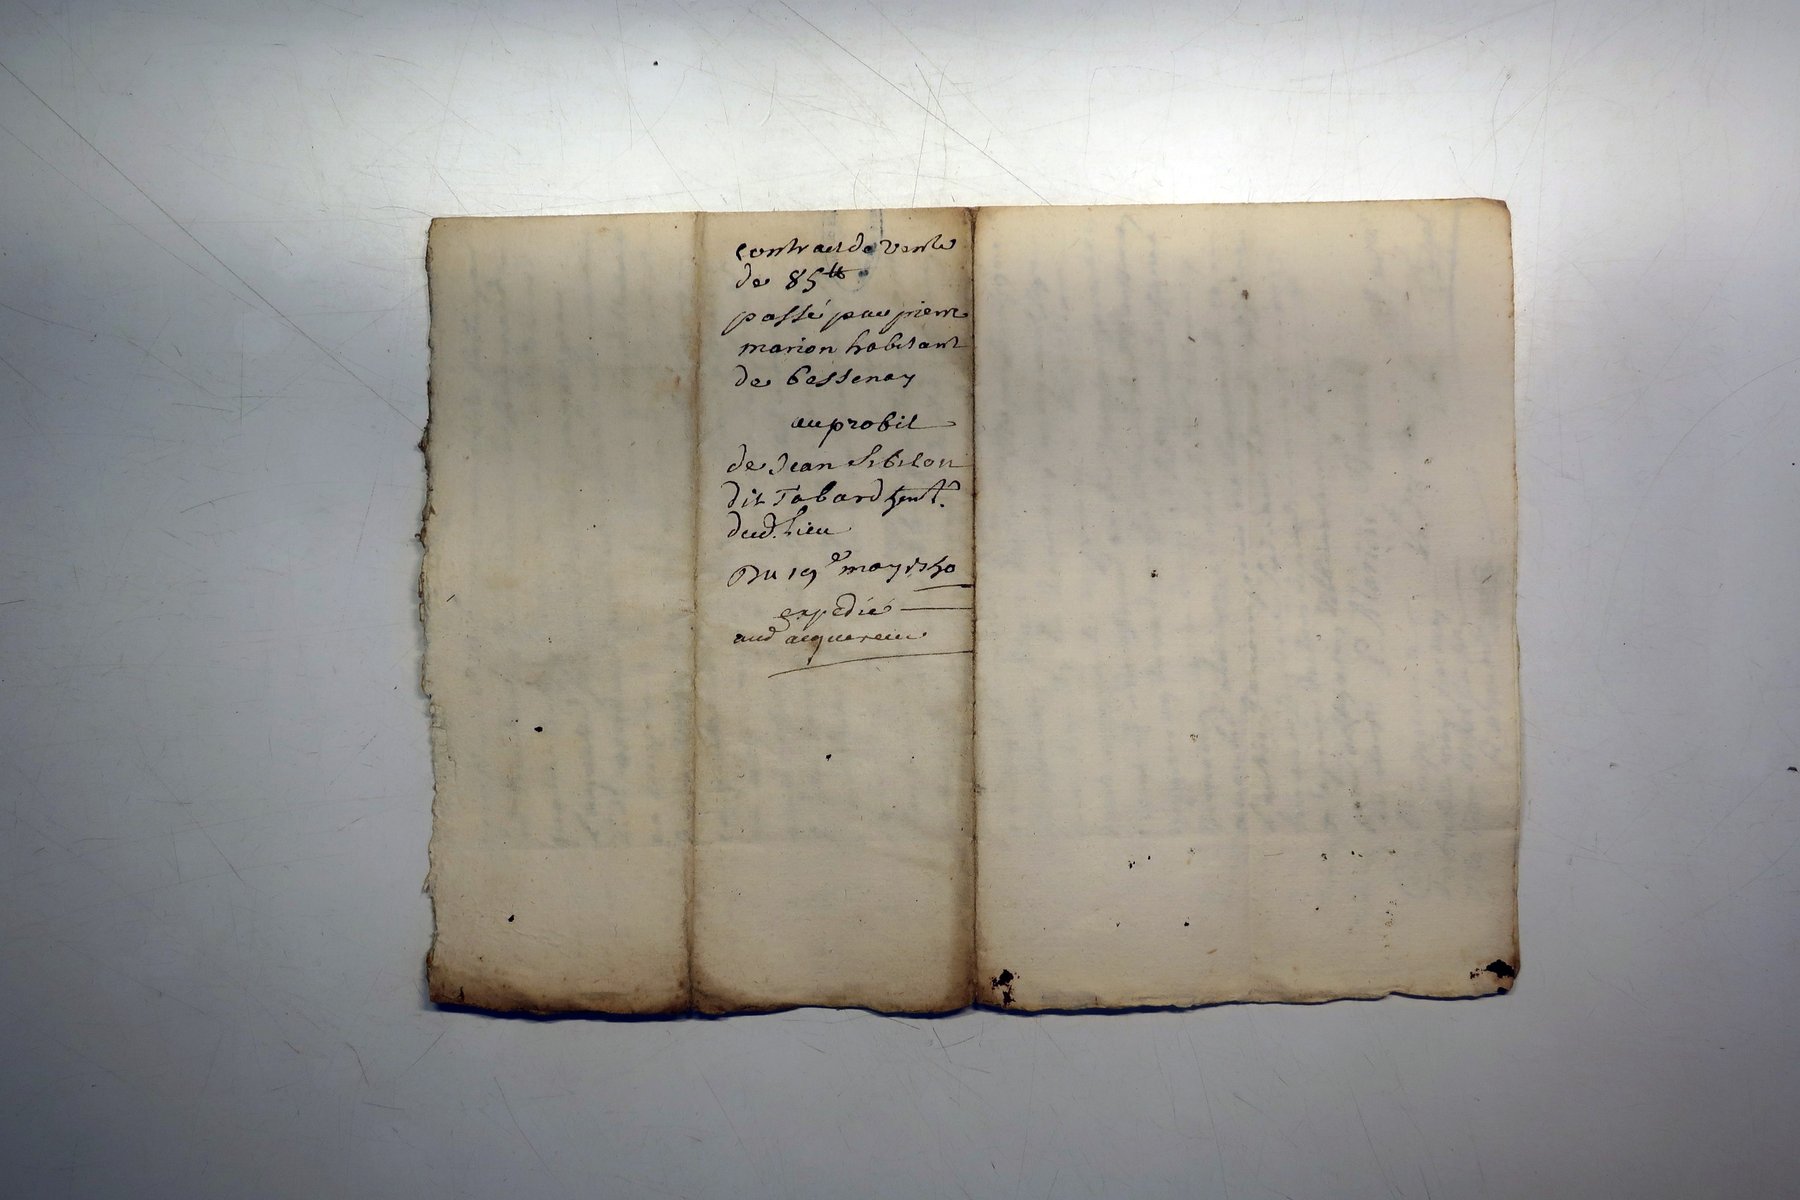 contract de vente
de 85ᵗᵗ
passé par pierre
marion habitant
de bessenay
au profit
de Jean Sibilon
dit Tabard hant.
dud. Lieu
Du 19ᵉ may
expedié
aud acquereur